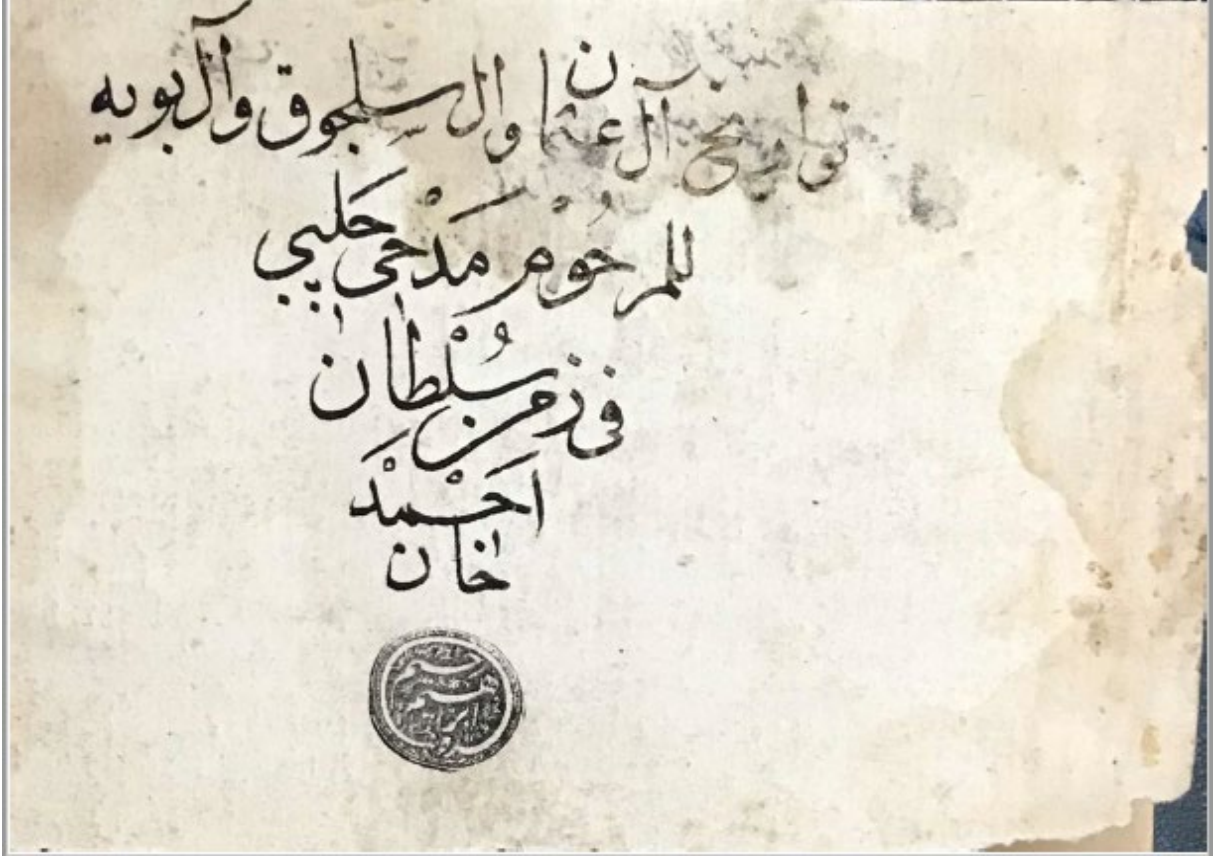 تواريخ آل عثمان وال سلجوق وآل بويه
للمرحُوْم مَدْحى چلبي
فى زمن سُلْطان
احَمْد
خان